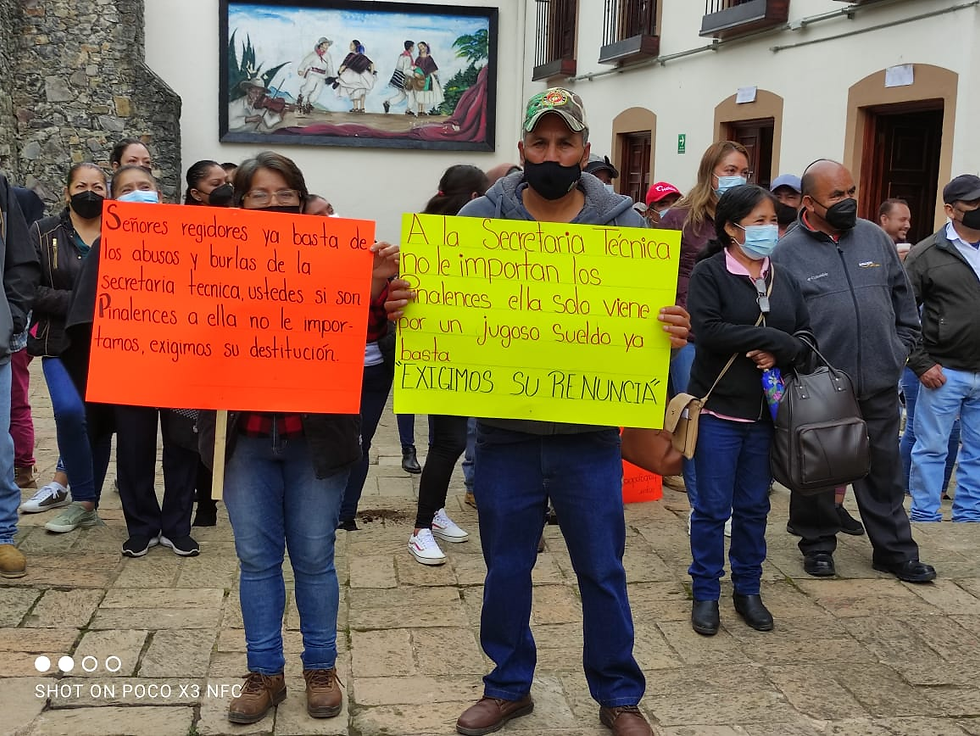 Señores regidores ya basta de
los abusos y burlas de la
secretaria tecnica, ustedes si son
Pinalences a ella no le impor-
tamos, exigimos su destitución.
A la Secretaria Técnica
no le importan los
Pinalences ella solo viene
por un jugoso sueldo ya
basta
"EXIGIMOS SU RENUNCIÁ"
SHOT ON POCO X3 NFC